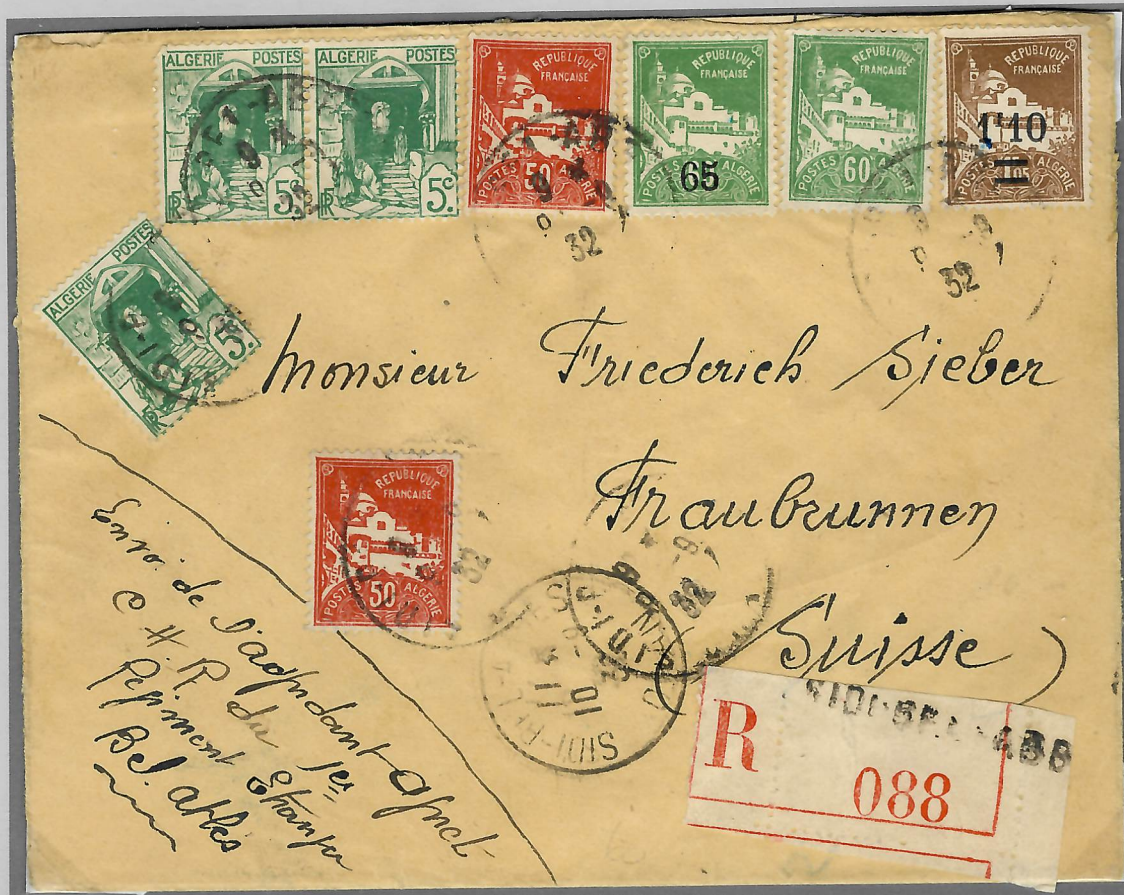 ALGERIE POSTES
5c
RF
ALGERIE POSTES
5c
RF
REPUBLIQUE
FRANÇAISE
50
POSTES ALGERIE
REPUBLIQUE
FRANÇAISE
65
POSTES ALGERIE
REPUBLIQUE
FRANÇAISE
60
POSTES ALGERIE
REPUBLIQUE
FRANÇAISE
1f10
POSTES ALGERIE
32
32
ALGERIE POSTES
5c
RF
Monsieur Friederich Sieber
Fraubrunnen
Suisse
REPUBLIQUE
FRANÇAISE
50
POSTES ALGERIE
32
SIDI-BEL-ABBES
10
Envoi de l'adjudant
C H R du 1er
Régiment Etranger
Bel. Abbès
R
SIDI-BEL-ABB
088